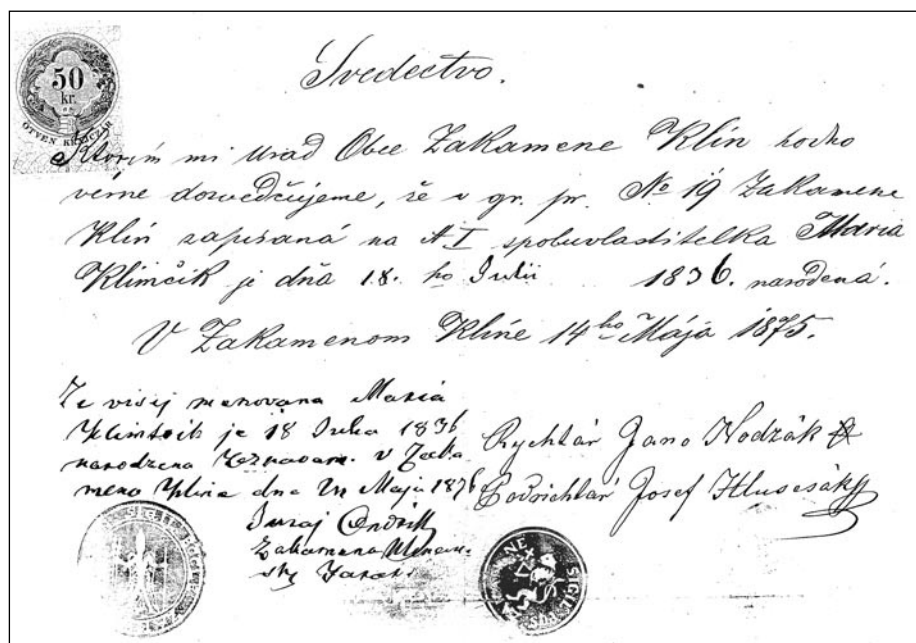 50
kr.
ÖTVEN KRAJCZÁR
Svedectvo.
Ktorím mi Urad Obce Zakamene Klin hodno
verne dosvedčujeme, že v gr. pr. No 19 Zakamene
Klin zapísaná na A I spoluvlastitelka Maria
Klimčik je dňa 18. ho Julii 1836. narodená.
V Zakamenom Klíne 14ho Mája 1875.
Ze visej menovana Maria
je 18 Julia 1836
narodzena v Zaka
meno Klina dna Maja 1876
Juraj
Rychtár Jano Nodžák
Podrichtár Josef Hluscsák
SIGIL